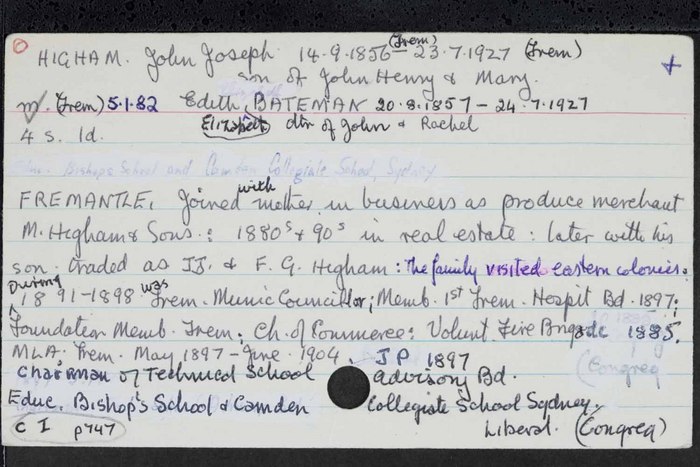 HIGHAM. John Joseph 14.9.1856 (Frem) – 23.7.1927 (Frem) +
son of John Henry & Mary.
m. (Frem) 5.1.82 Edith, BATEMAN 20.8.1857 – 24.7.1927
4 s. 1d. (Elizabeth) dtr of John & Rachel
Educ. Bishop's School and Camden Collegiate School, Sydney
FREMANTLE, Joined with mother in business as produce merchant
M. Higham & Sons.: 1880s & 90s in real estate: later with his
son. traded as J.J. & F. G. Higham: The family visited eastern colonies.
During 1891-1898 was Frem. Munic Councillor; Memb. 1st Frem. Hospit Bd. 1897;
Foundation Memb. Frem: Ch. of Commerce: Volunt Fire Brigade 1885.
MLA: Frem. May 1897 – June 1904. J P 1897
Chairman of Technical School advisory Bd. (Congreg
Educ. Bishop's School & Camden Collegiate School Sydney.
C I p747 Liberal. (Congreg)